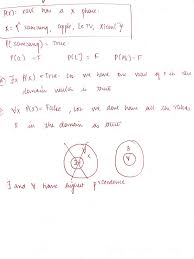 P(x): cell has a x phone.
x = { samsung, apple, Le TV, xiomi }
P(samsung) = True
P(a) → F P(L) = F P(x) → F
∃x P(x) = True. Coz we have one value of x in the domain which is true
∀x P(x) = False, coz we dont have all the values in the domain as true
∃x
∃
∀
∃ and ∀ have highest precedence